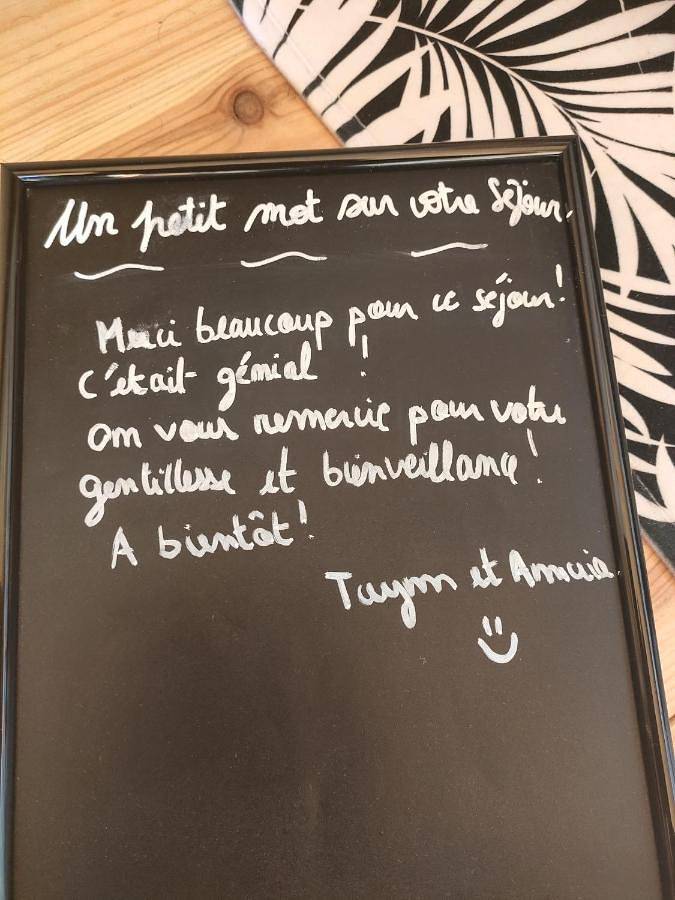 Un petit mot sur votre Séjour.
Merci beaucoup pour ce séjour!
C'était génial !
on vous remercie pour votre
gentillesse et bienveillance!
A bientôt!
Taym et